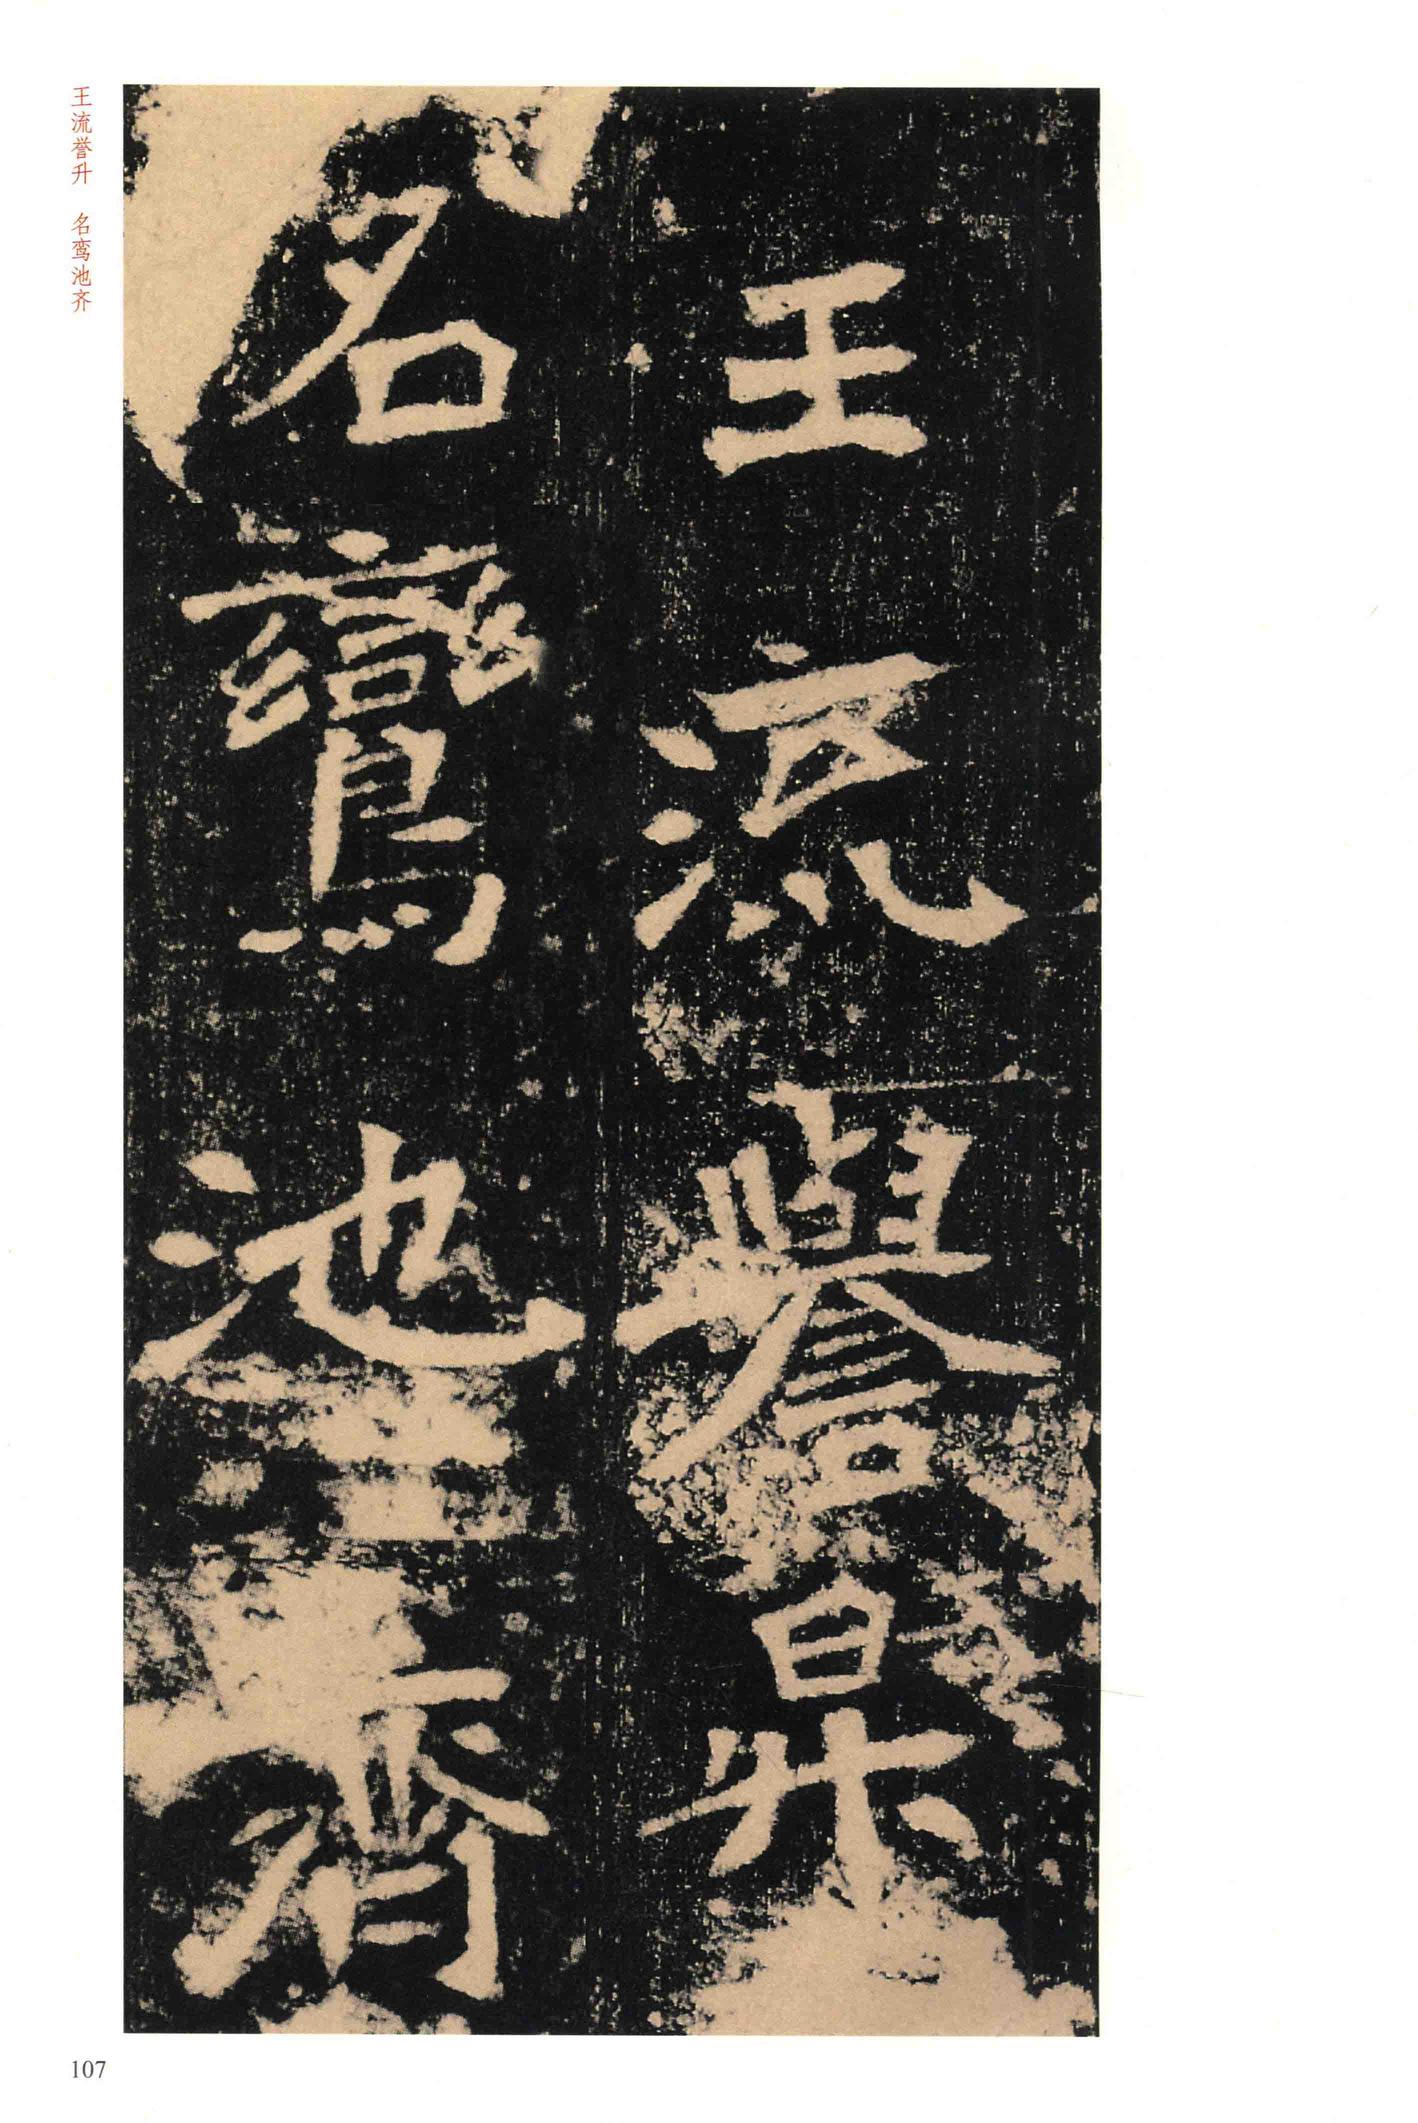 王流譽昇
名鸞池齊
王流誉升 名鸾池齐
107